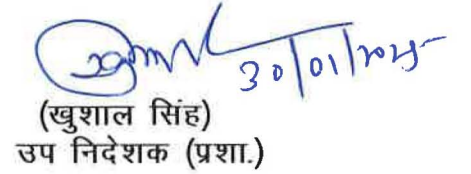 30/01/2025
(खुशाल सिंह)
उप निदेशक (प्रशा.)